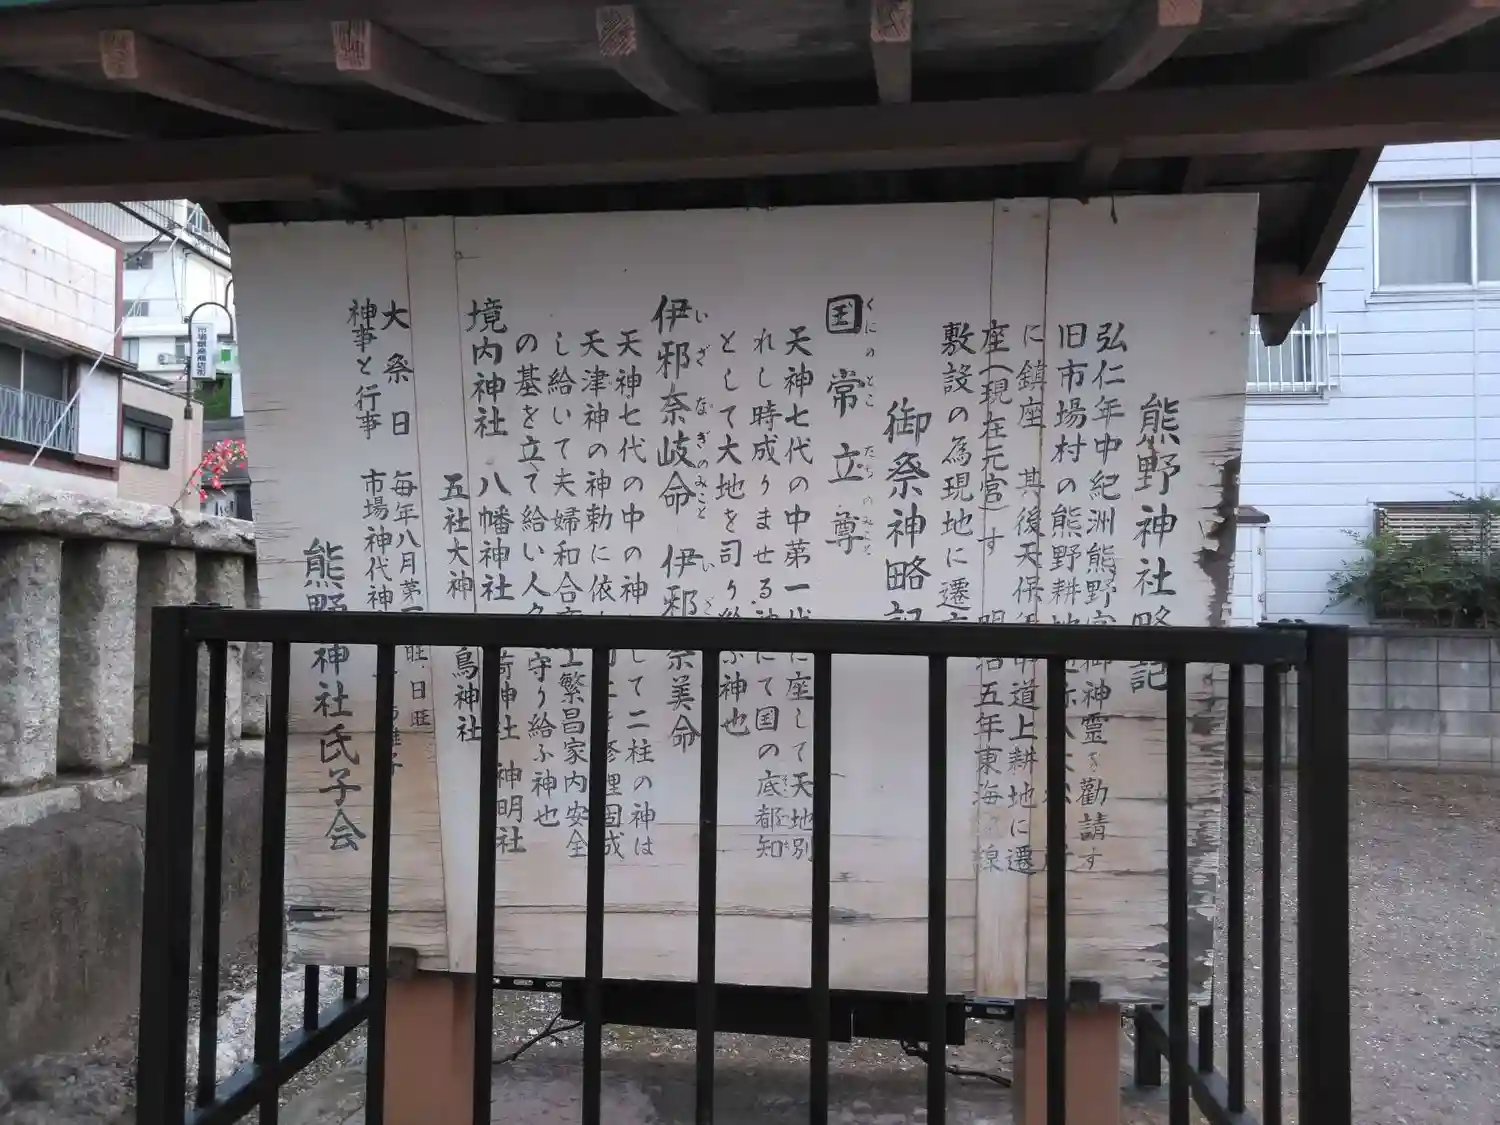 熊野神社略記
弘仁年中紀洲熊野 御神霊を勧請す
旧市場村の熊野耕地
に鎮座 其後天保 道上耕地に遷
座(現在元宮)す 明治五年東海 線
敷設の為現地に遷
御祭神略記
国常立尊
くにのとこたちのみこと
天神七代の中第一 座して天地別
れし時成りませる にて国の底都知
として大地を司り 神也
伊邪奈岐命 伊邪奈美命
いざなぎのみこと
天神七代の中の神 して二柱の神は
天津神の神勅に依 修理固成
し給いて夫婦和合 繁昌家内安全
の基を立て給い人 守り給ふ神也
境内神社 八幡神社 神社 神明社
五社大神 鳥神社
大祭日 毎年八月第 日
神事と行事 市場神代神
熊野神社氏子会